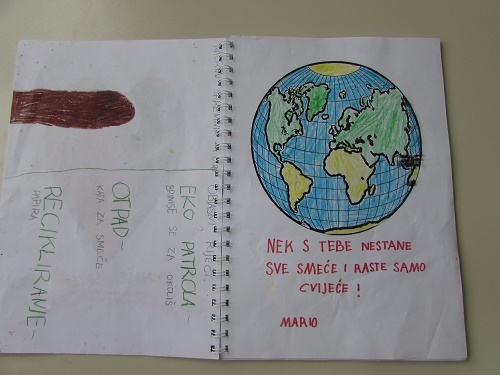 RIJEČI:
EKO PATROLA-
SE ZA OKOLIŠ
OTPAD-
ZA SMEĆE
RECIKLIRANJE-
PAPIRA
NEK S TEBE NESTANE
SVE SMEĆE I RASTE SAMO
CVIJEĆE !
MARIO